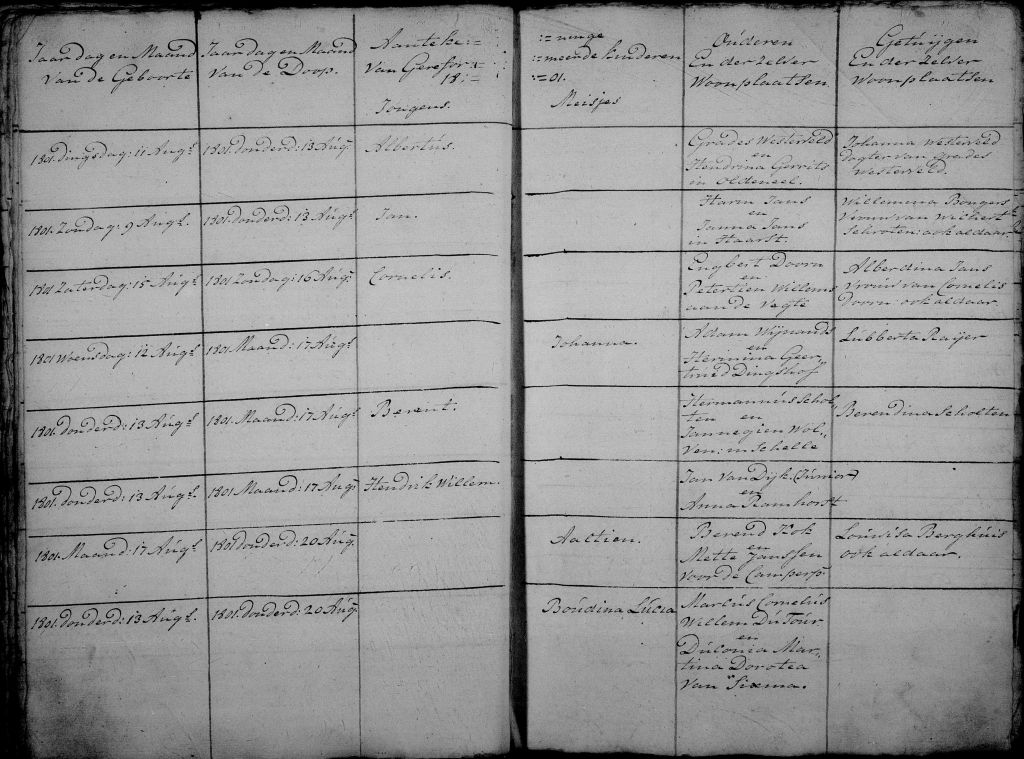 Jaar dag en Maand
van de Geboorte
Jaar dag en Maand
van de Doop.
Aanteke:=
van Gerefor:=
18:=
Jongens.
:=ninge
:=meerde kinderen
:=01.
Meisjes
Ouderen
En der zelver
Woonplaatsen
Getuijgen
En der zelver
Woonplaatsen
1801. dingsdag: 11 Augs.
1801. donderd: 13 Augs.
Albertus.
Grades Westerveld
en
Hendrina Gerrits
in Oldeneel.
Johanna Westerveld
dogter van Grades
Westerveld.
1801. Zondag: 9 Augs.
1801. donderd: 13 Augs.
Jan.
Harm Jans
en
Janna Jans
in Haarst.
Willemina Bongers
Vrouw van Wichert
Schroten: ook aldaar
1801 Zaterdag: 15 Augs.
1801 Zondag: 16 Augs.
Cornelis.
Engbert Doorn
en
Petertien Willems
aan de Vegte
Alberdina Jans
Vrouw van Cornelis
Doorn ook aldaar.
1801 Woensdag: 12 Augs.
1801 Maand: 17 Augs.
Johanna.
Adam Wijnands
en
Hermina Geer-
truid Dingshof
Lubberta Raijer
1801. donderd: 13 Augs.
1801. Maand: 17 Augs.
Berent:
Hermannus Schol-
ten en
Jannegien Wol-
ven: in Schelle
Berendina Scholten
1801. donderd: 13 Augs.
1801 Maand: 17 Augs.
Hendrik Willem.
Jan van Dijk (Junior)
en
Anna Ramhorst
1801. Maand: 17 Augs.
1801 donderd: 20 Augs.
Aactien.
Berend Kok
en
Mette Janssen
voor de Camperp.
Louvisa Berghuis
ook aldaar.
1801. donderd: 13 Augs.
1801. donderd: 20 Augs.
Boudina Lucia
Marcus Cornelis
Willem Du Tour
en
Dulonia Mar-
tina Dorotea
van Sixma.